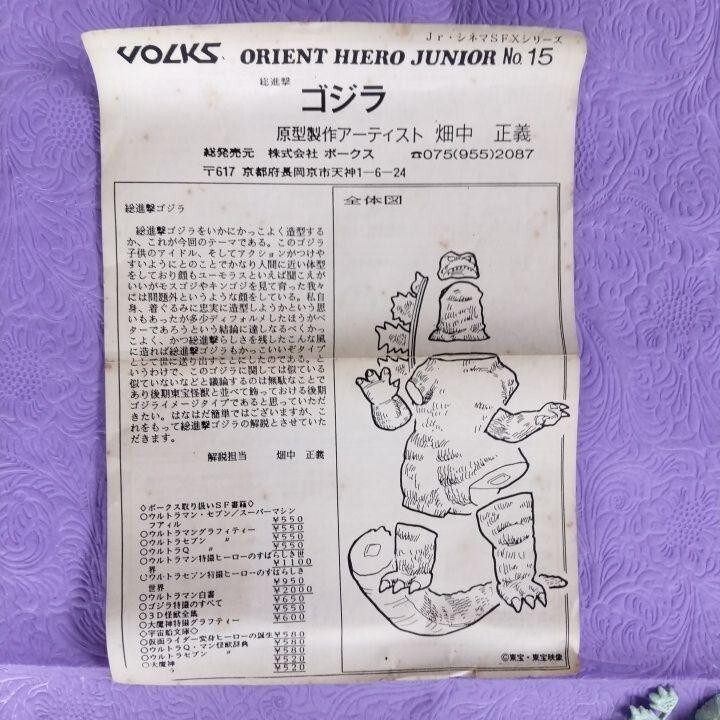 Jr・シネマSFXシリーズ
VOLKS ORIENT HIERO JUNIOR No.15
総進撃
ゴジラ
原型製作アーティスト 畑中 正義
総発売元 株式会社 ボークス ☎075(955)2087
〒617 京都府長岡京市天神1-6-24
総進撃ゴジラ
総進撃ゴジラをいかにかっこよく造型する
か、これが今回のテーマである。このゴジラ
子供のアイドル、そしてアクションがつけや
すいようにとのことでかなり人間に近い体型
をしており顔もユーモラスといえば聞こえが
いいがモスゴジやキンゴジを見て育った我々
には問題外というような顔をしている。私自
身、着ぐるみに忠実に造型しようかという思
いもあったが多少ディフォルメしたほうがベ
ターであろうという結論に達しなるべくかっ
こよく、かつ総進撃らしさを残したこんな風
に造れば総進撃ゴジラもかっこいいぞタイプ
として世に送り出すことにしたのである。と
いうわけで、このゴジラに関しては似ている
似ていないなどと議論するのは無駄なことで
あり後期東宝怪獣と並べて飾っておける後期
ゴジライメージタイプであると思っていただ
きたい。はなはだ簡単ではございますが、こ
れをもって総進撃ゴジラの解説とさせていた
だきます。
解説担当 畑中 正義
◇ボークス取り扱いSF書籍◇
○ウルトラマン・セブン/スーパーマシン
ファイル ¥550
○ウルトラマングラフィティー ¥550
○ウルトラセブン 〃 ¥550
○ウルトラQ 〃 ¥550
○ウルトラマン特撮ヒーローのすばらしき世
界 ¥1100
○ウルトラセブン特撮ヒーローのすばらしき
世界 ¥950
○ウルトラマン白書 ¥2000
○ゴジラ特撮のすべて ¥650
○3D怪獣全集 ¥550
○大魔神特撮グラフティー ¥600
◇宇宙船文庫◇
○仮面ライダー変身ヒーローの誕生 ¥580
○ウルトラQ・マン怪獣辞典 ¥580
○ウルトラセブン 〃 ¥580
○大魔神 ¥520
¥520
全体図
©東宝・東宝映像